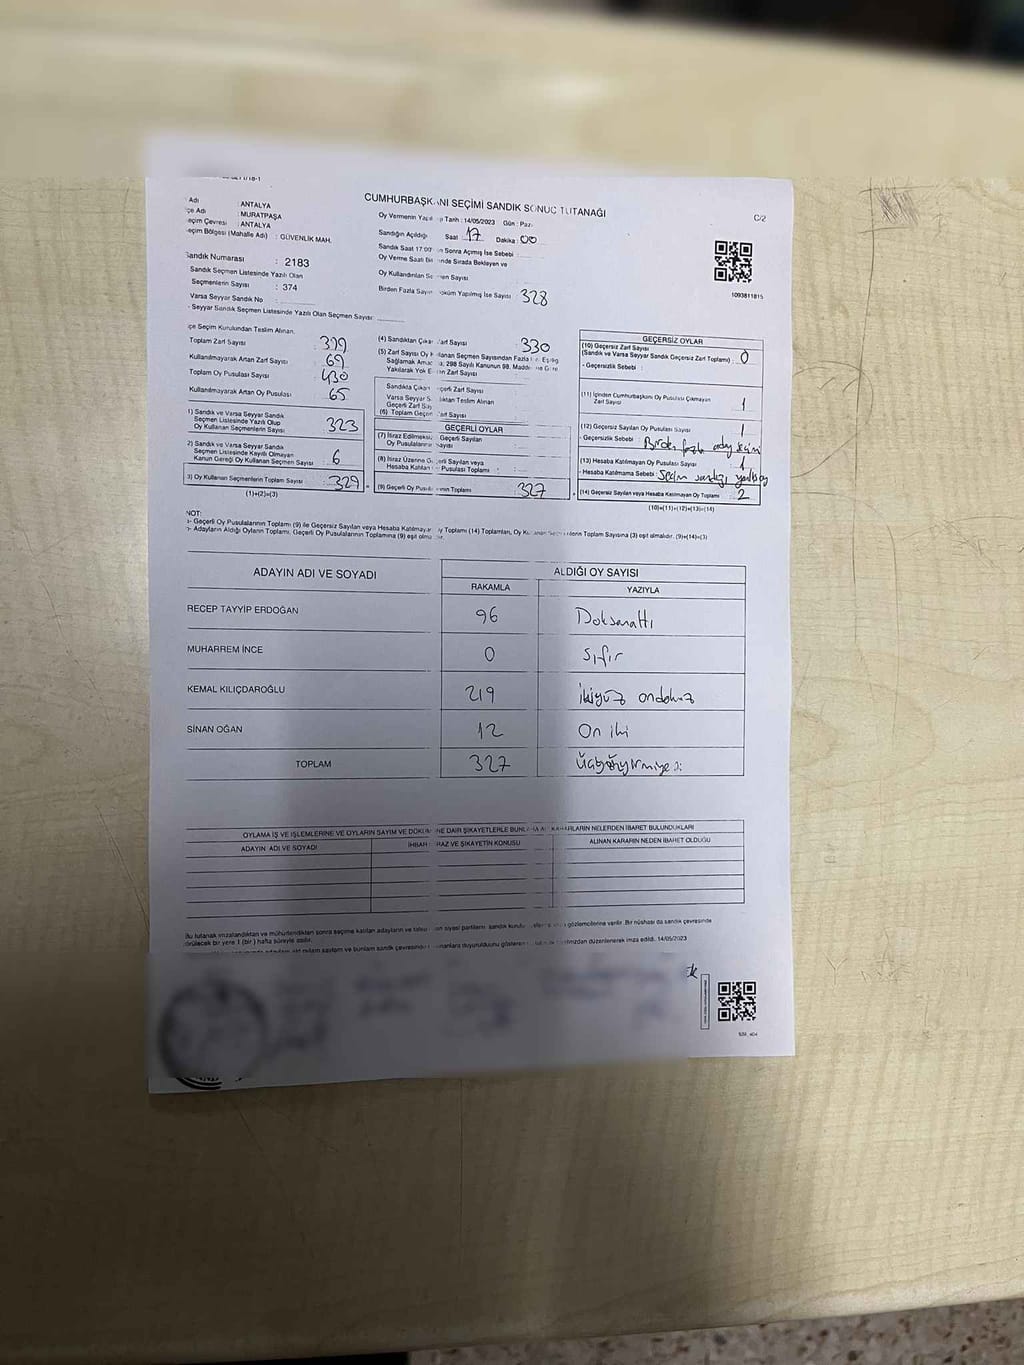 CUMHURBAŞKANI SEÇİMİ SANDIK SONUÇ TUTANAĞI
C/2
Adı : ANTALYA
çe Adı : MURATPAŞA
eçim Çevresi : ANTALYA
eçim Bölgesi (Mahalle Adı) : GÜVENLİK MAH.
Oy Vermenin Yapıl Tarih : 14/05/2023 Gün : Paz
Sandığın Açıldığı Saat 17 Dakika : 00
Sandık Saat 17:00 n Sonra Açımış İse Sebebi :
Oy Verme Saati Bit nde Sırada Bekleyen ve
Oy Kullandırılan Se n Sayısı
Birden Fazla Sayım Döküm Yapılmış İse Sayısı : 328
1093811815
Sandık Numarası : 2183
Sandık Seçmen Listesinde Yazılı Olan
Seçmenlerin Sayısı : 374
Varsa Seyyar Sandık No :
- Seyyar Sandık Seçmen Listesinde Yazılı Olan Seçmen Sayısı:
çe Seçim Kurulundan Teslim Alınan,
Toplam Zarf Sayısı :
Kullanılmayarak Artan Zarf Sayısı : 69
Toplam Oy Pusulası Sayısı : 430
Kullanılmayarak Artan Oy Pusulası : 65
1) Sandık ve Varsa Seyyar Sandık
Seçmen Listesinde Yazılı Olup
Oy Kullanan Seçmenlerin Sayısı : 323
2) Sandık ve Varsa Seyyar Sandık
Seçmen Listesinde Kayıtlı Olmayan
Kanun Gereği Oy Kullanan Seçmen Sayısı : 6
3) Oy Kullanan Seçmenlerin Toplam Sayısı : 329
(1)+(2)=(3)
(4) Sandıktan Çıka Zarf Sayısı : 330
(5) Zarf Sayısı Oy K llanan Seçmen Sayısından Fazla İ Eşitliği
Sağlamak Ama : 298 Sayılı Kanunun 98. Madde ne Göre
Yakılarak Yok E en Zarf Sayısı
Sandıkta Çıkan eçerli Zarf Sayısı :
Varsa Seyyar S ıktan Teslim Alınan
Geçerli Zarf Say
(6) Toplam Geçerl arf Sayısı :
GEÇERLİ OYLAR
(7) İtiraz Edilmeksiz Geçerli Sayılan
Oy Pusulalarını ayısı :
(8) İtiraz Üzerine G erli Sayılan veya
Hesaba Katılan Pusulası Toplamı :
(9) Geçerli Oy Pusula ının Toplamı : 327
GEÇERSİZ OYLAR
(10) Geçersiz Zarf Sayısı
(Sandık ve Varsa Seyyar Sandık Geçersiz Zarf Toplamı) : 0
- Geçersizlik Sebebi :
(11) İçinden Cumhurbaşkanı Oy Pusulası Çıkmayan
Zarf Sayısı : 1
(12) Geçersiz Sayılan Oy Pusulası Sayısı : 1
- Geçersizlik Sebebi : Birden fazla aday seçimi
(13) Hesaba Katılmayan Oy Pusulası Sayısı : 1
- Hesaba Katılmama Sebebi : Seçim sandığı yanlış oy
(14) Geçersiz Sayılan veya Hesaba Katılmayan Oy Toplamı : 2
(10)+(11)+(12)+(13)=(14)
NOT:
- Geçerli Oy Pusulalarının Toplamı (9) ile Geçersiz Sayılan veya Hesaba Katılmayan Oy Toplamı (14) Toplamları, Oy Kullanan Seçmenlerin Toplam Sayısına (3) eşit olmalıdır. (9)+(14)=(3)
- Adayların Aldığı Oyların Toplamı, Geçerli Oy Pusulalarının Toplamına (9) eşit olma
ADAYIN ADI VE SOYADI
ALDIĞI OY SAYISI
RAKAMLA YAZIYLA
RECEP TAYYİP ERDOĞAN 96 Doksanaltı
MUHARREM İNCE 0 Sıfır
KEMAL KILIÇDAROĞLU 219 İkiyüz ondokuz
SİNAN OĞAN 12 On iki
TOPLAM 327 Üçyüzyirmiyedi
OYLAMA İŞ VE İŞLEMLERİNE VE OYLARIN SAYIM VE DÖKÜ NE DAİR ŞİKAYETLERLE BUNL A A KARARLARIN NELERDEN İBARET BULUNDUKLARI
ADAYIN ADI VE SOYADI
İHBAR RAZ VE ŞİKAYETİN KONUSU
ALINAN KARARIN NEDEN İBARET OLDUĞU
Bu tutanak imzalandıktan ve mühürlendikten sonra seçime katılan adayların ve siyasi partilerin sandık kurulu gözlemcilerine verilir. Bir nüshası da sandık çevresinde
görülecek bir yere 1 (bir) hafta süreyle asılır.